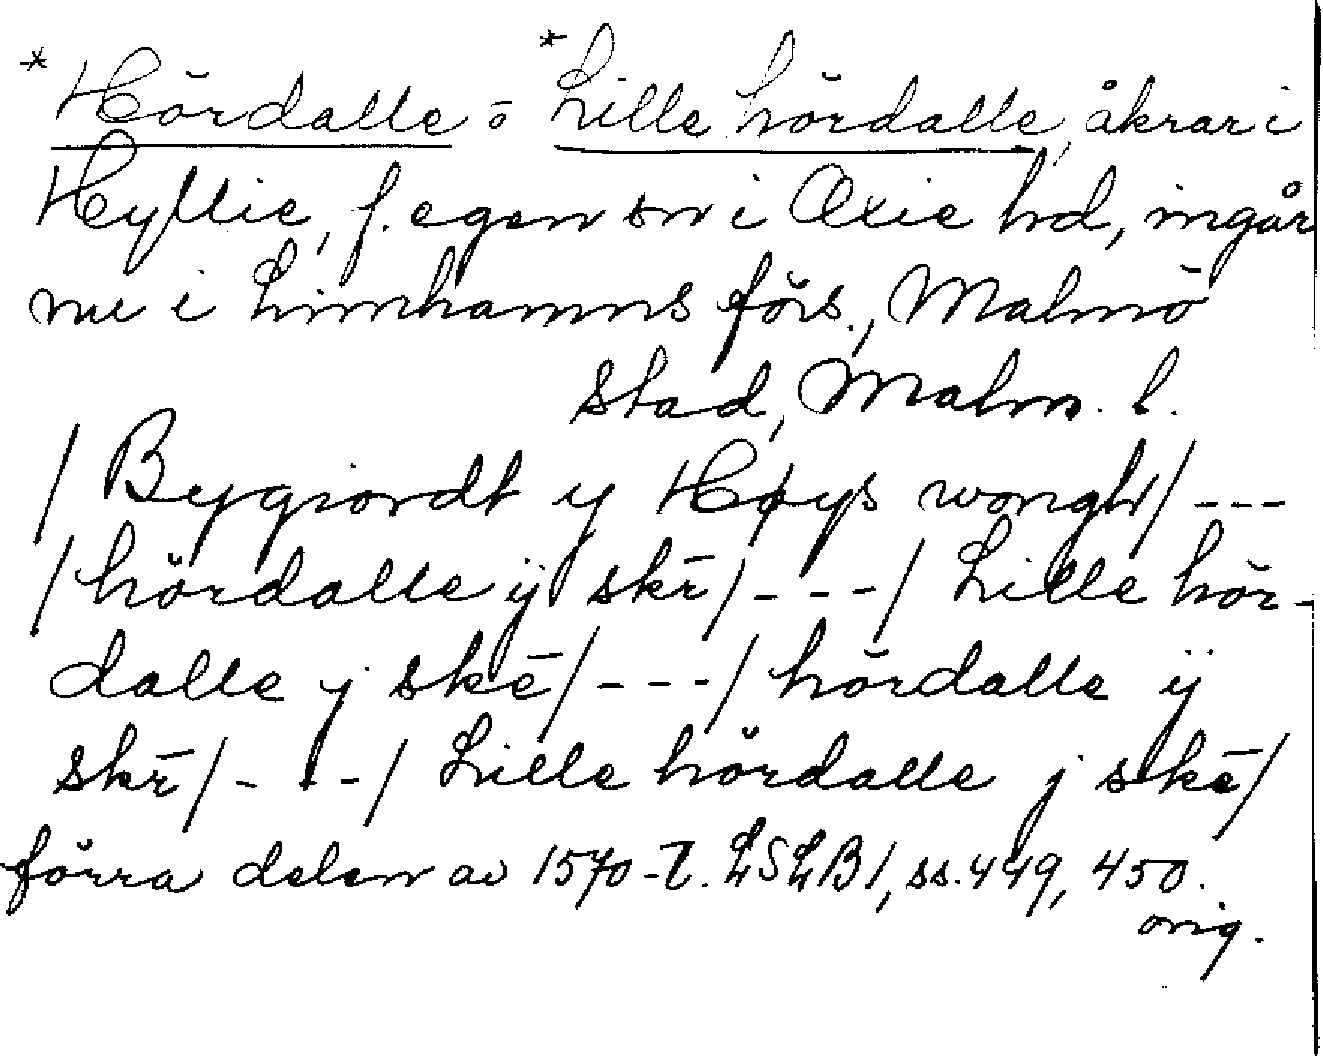 *Hördalle o *Lille hördalle, åkrar i
Hyllie, f. egen sn i Oxie hd, ingår
nu i Limhamns förs., Malmö
stad, Malm. l.
/ Bygiordt y Høys wongh/ ---
/ hördalle ÿ skr̄/ --- / Lille hör-
dalle j skē/ --- / hördalle ÿ
skr̄/ --- / Lille hördalle j skē/
förra delen av 1570-t. LSLB1, ss. 449, 450.
orig.